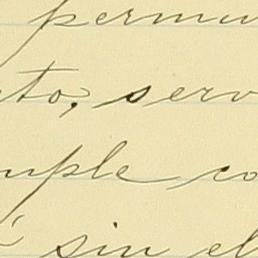 permu
to, serv
mple co
sin el